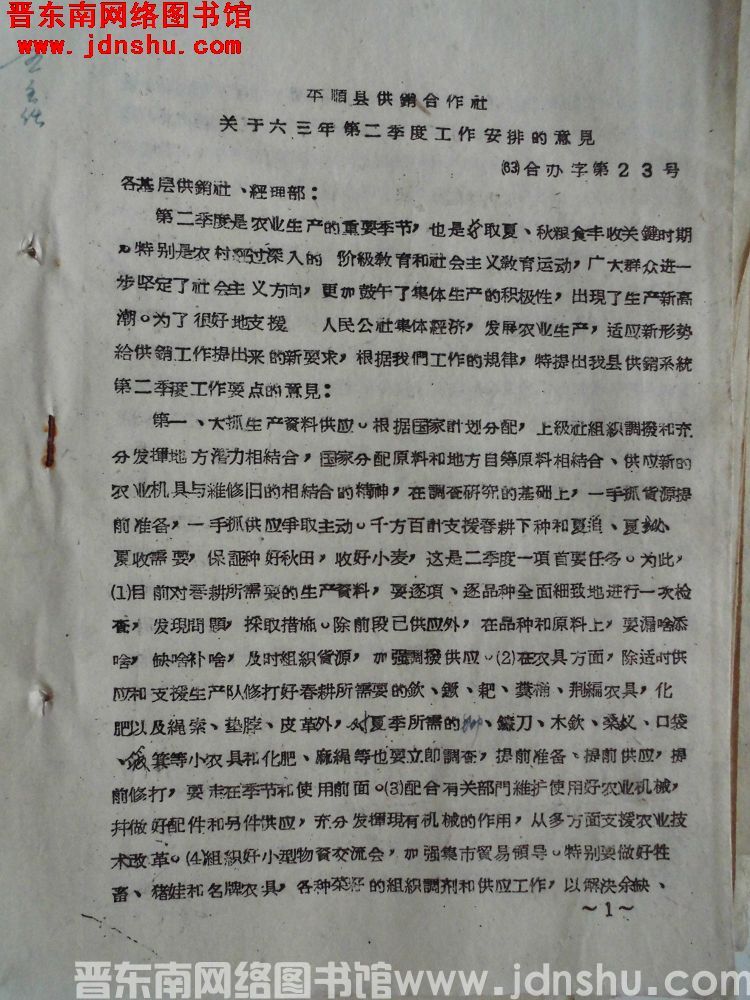 晋东南网络图书馆
www.jdnshu.com
平順县供銷合作社
关于六三年第二季度工作安排的意見
(63)合办字第23号
各基层供銷社、經理部：
第二季度是农业生产的重要季节，也是夺取夏、秋粮食丰收关鍵时期
。特别是农村經过深入的 阶級敎育和社会主义敎育运动，广大群众进一
步坚定了社会主义方向，更加鼓午了集体生产的积极性，出現了生产新高
潮。为了很好地支援 人民公社集体經济，发展农业生产，适应新形势
給供銷工作提出来的新要求，根据我們工作的规律，特提出我县供銷系統
第二季度工作要点的意見：
第一、大抓生产資料供应。根据国家計划分配，上級社組織調撥和充
分发揮地方潛力相結合，国家分配原料和地方自筹原料相結合、供应新的
农业机具与維修旧的相結合的精神，在調查研究的基础上，一手抓貨源提
前准备，一手抓供应爭取主动。千方百計支援春耕下种和夏追、夏
夏收需要，保証种好秋田，收好小麦，这是二季度一項首要任务。为此，
(1)目前对春耕所需要的生产資料，要逐項、逐品种全面細致地进行一次检
查，发現問題，採取措施。除前段已供应外，在品种和原料上，要漏啥添
啥，缺啥补啥，及时組織貨源，加强調撥供应。(2)在农具方面，除适时供
应和支援生产队修打好春耕所需要的鍁、鐝、耙、糞桶、荆編农具，化
肥以及繩索、垫脖、皮革外，对夏季所需的、鐮刀、木鍁、桑杈、口袋
、簸箕等小农具和化肥、麻绳等也要立即調查，提前准备、提前供应，提
前修打，要走在季节和使用前面。(3)配合有关部門維护使用好农业机械，
幷做好配件和另件供应，充分发揮現有机械的作用，从多方面支援农业技
术改革。(4)組織好小型物資交流会，加强集市貿易領导。特别要做好牲
畜、猪娃和名牌农具，各种菜籽的組織調剂和供应工作，以解决余缺、
～1～
晋东南网络图书馆www.jdnshu.com